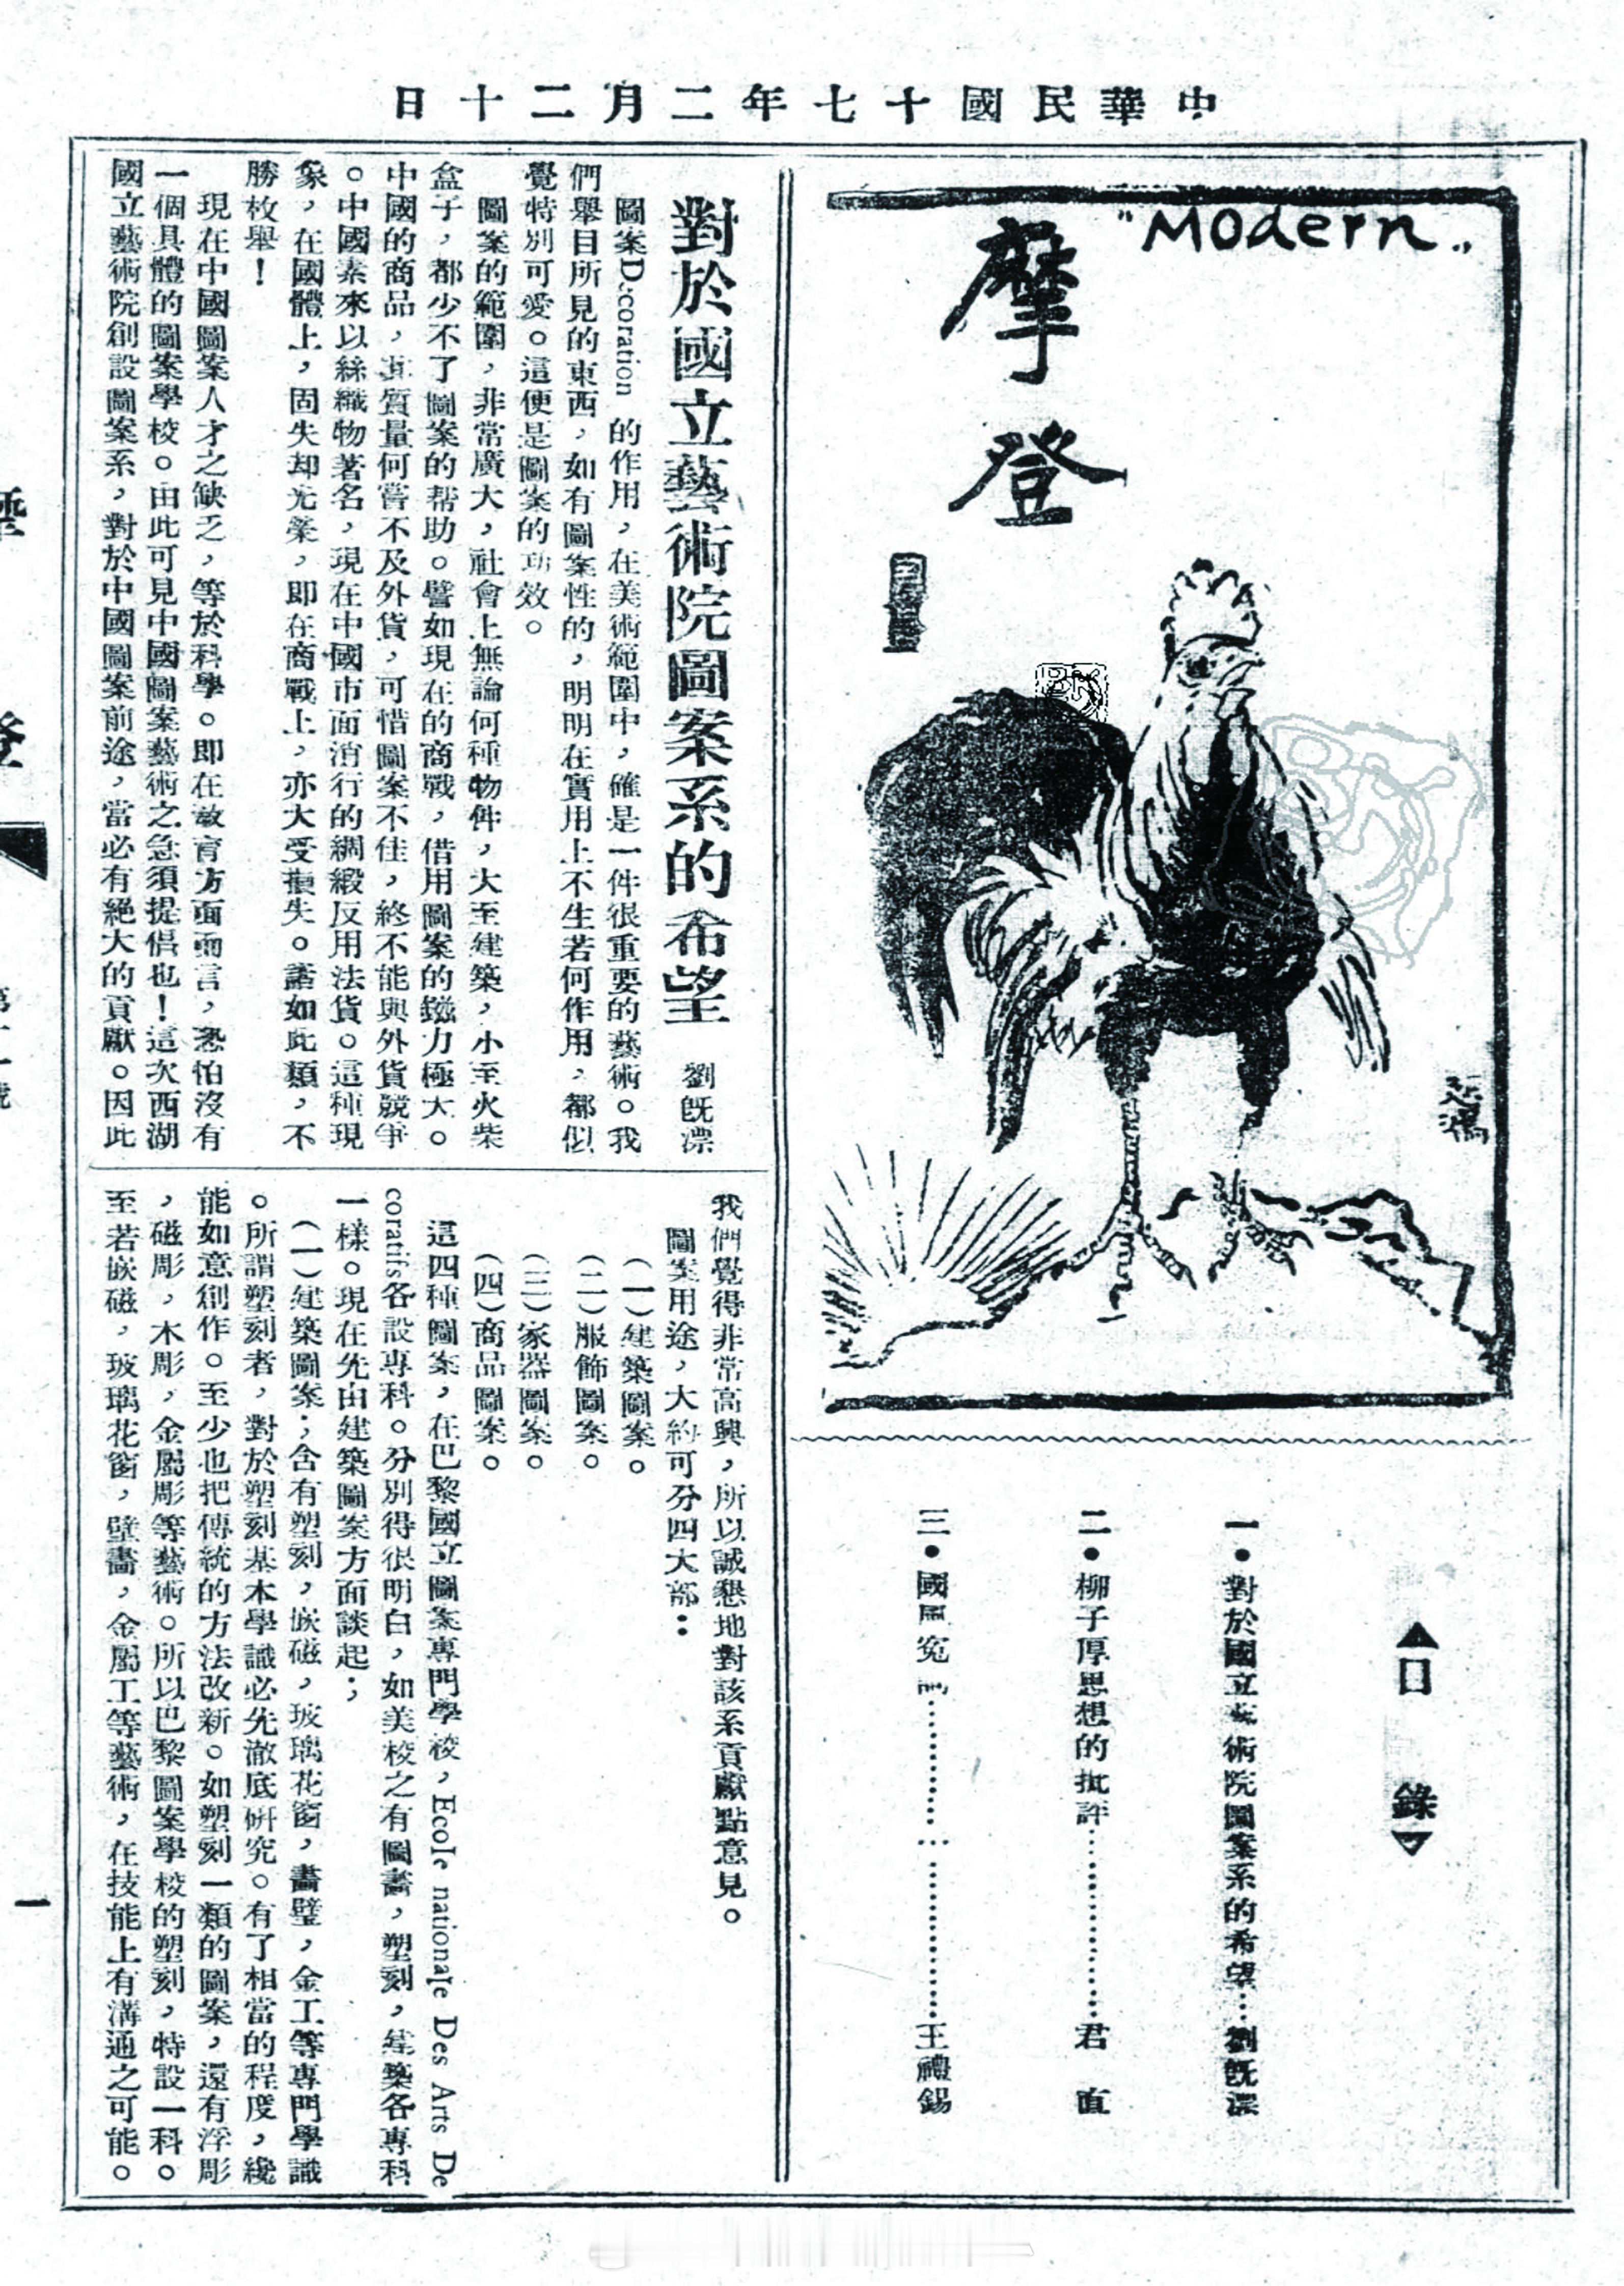 中華民國十七年二月二十日
"Modern"
摩登
悲鴻
▲目 錄▼
一•對於國立藝術院圖案系的希望…劉旣漂
二•柳子厚思想的批評…………………君 直
三•國風冤詞…………………………王禮錫
對於國立藝術院圖案系的希望 劉旣漂
圖案Decoration 的作用,在美術範圍中,確是一件很重要的藝術。我
們舉目所見的東西,如有圖案性的,明明在實用上不生若何作用,都似
覺特別可愛。這便是圖案的功效。
圖案的範圍,非常廣大,社會上無論何種物件,大至建築,小至火柴
盒子,都少不了圖案的帮助。譬如現在的商戰,借用圖案的鎡力極大。
中國的商品,其質量何嘗不及外貨,可惜圖案不佳,終不能與外貨競爭
。中國素來以絲織物著名,現在中國市面消行的綢緞反用法貨。這種現
象,在國體上,固失却光榮,即在商戰上,亦大受損失。諸如此類,不
勝枚舉!
現在中國圖案人才之缺乏,等於科學。即在敎育方面而言,恐怕沒有
一個具體的圖案學校。由此可見中國圖案藝術之急須提倡也!這次西湖
國立藝術院創設圖案系,對於中國圖案前途,當必有絕大的貢獻。因此
我們覺得非常高興,所以誠懇地對該系貢獻點意見。
圖案用途,大約可分四大部:
(一)建築圖案。
(二)服飾圖案。
(三)家器圖案。
(四)商品圖案。
這四種圖案,在巴黎國立圖案專門學校,Ecole nationale Des Arts De
coratifs各設專科。分別得很明白,如美校之有圖畵,塑刻,建築各專科
一樣。現在先由建築圖案方面談起;
(一)建築圖案;含有塑刻,嵌磁,玻璃花窗,畵壁,金工等專門學識
。所謂塑刻者,對於塑刻基本學識必先澈底研究。有了相當的程度,纔
能如意創作。至少也把傳統的方法改新。如塑刻一類的圖案,還有浮彫
,磁彫,木彫,金屬彫等藝術。所以巴黎圖案學校的塑刻,特設一科。
至若嵌磁,玻璃花窗,壁畵,金屬工等藝術,在技能上有溝通之可能。
一